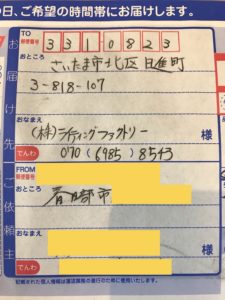 の日、ご希望の時間帯にお届けします。
お届け先
TO
郵便番号
3310823
おところ
さいたま市北区日進町
3-818-107
おなまえ
(株)ライティングファクトリー
様
でんわ
070(6985)8543
ご依頼主
FROM
郵便番号
おところ
春日部市
おなまえ
様
でんわ
記載された個人情報は運送業務の遂行のために使用いたします。